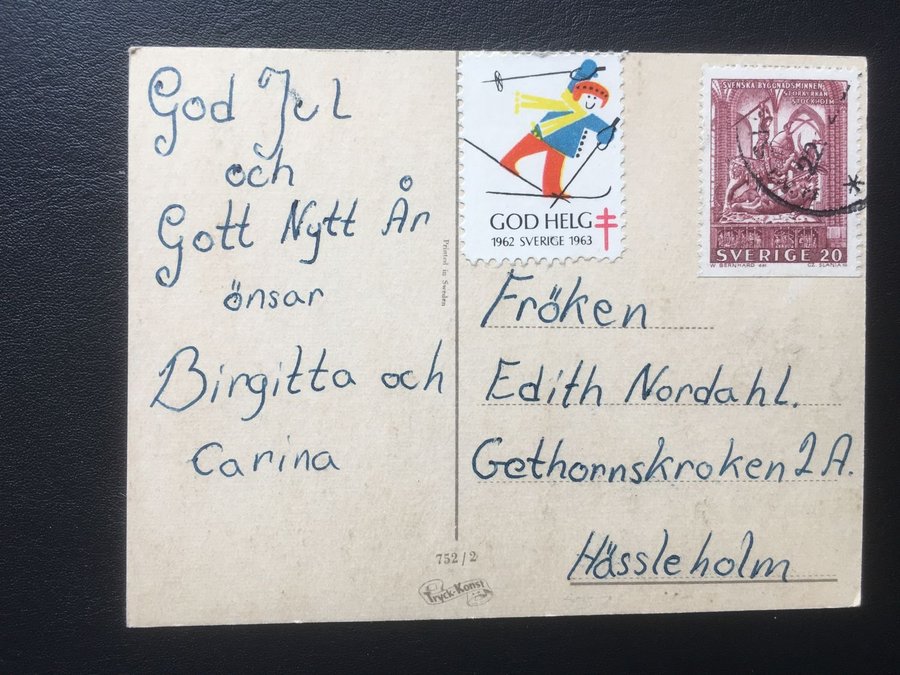 God Jul
och
Gott Nytt År
önsar
Birgitta och
Carina
Printed in Sweden
752/2
Tryck-Konst
GOD HELG
1962 SVERIGE 1963
SVENSKA BYGNADSMINNEN
STORKYRKAN
STOCKHOLM
22
SVERIGE 20
W. BERNHARD CZ. SLANIA
Fröken
Edith Nordahl.
Gethornskroken 2 A.
Hässleholm